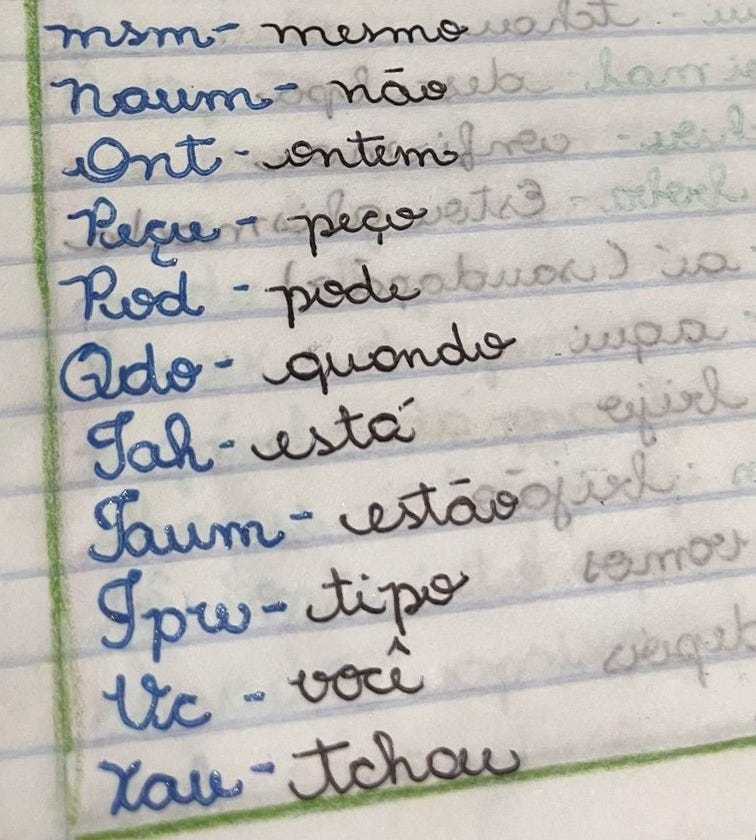 msm - mesmo
Naum - não
Ont - ontem
Peçu - peço
Pod - pode
Qdo - quando
Tah - está
Taum - estão
Tpw - tipo
Vc - você
Xau - tchau